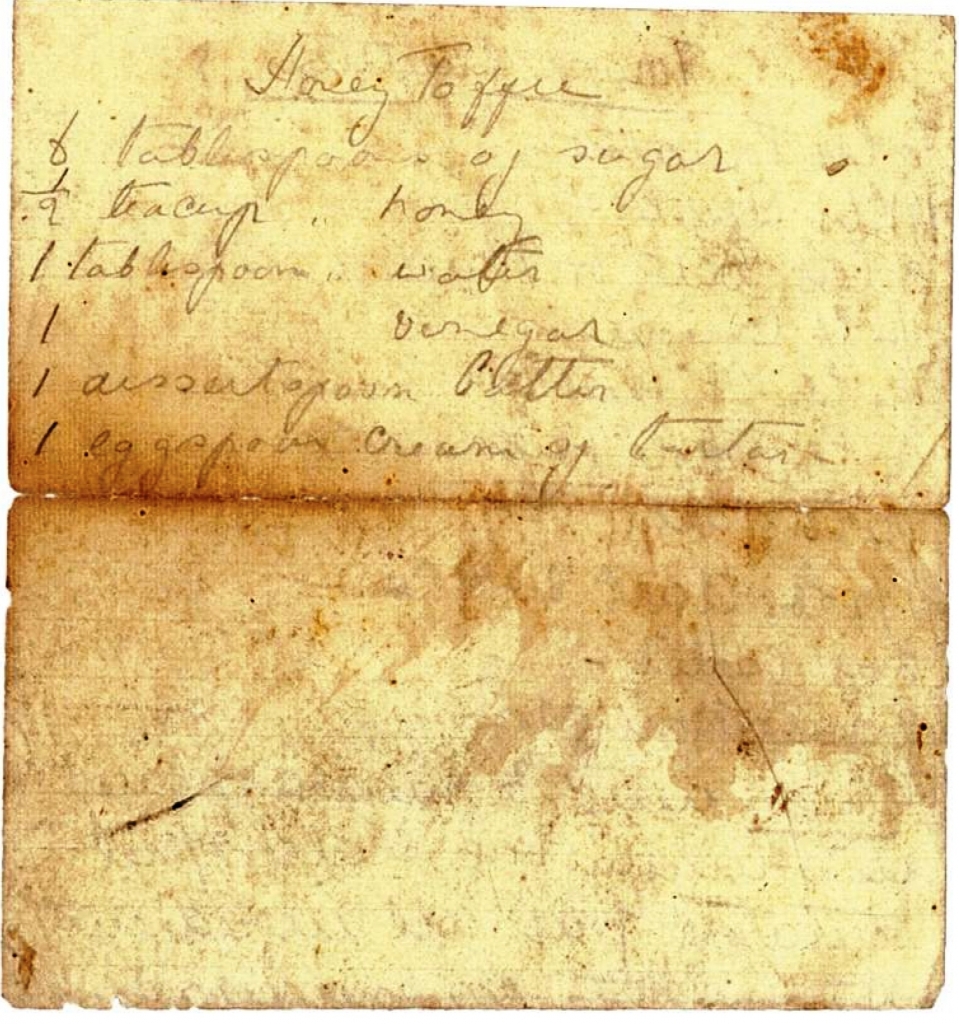 Honey Toffee
6 tablespoons of sugar
½ teacup " honey
1 tablespoon " water
1 vinegar
1 dessertspoon butter
1 eggspoon cream of tartar